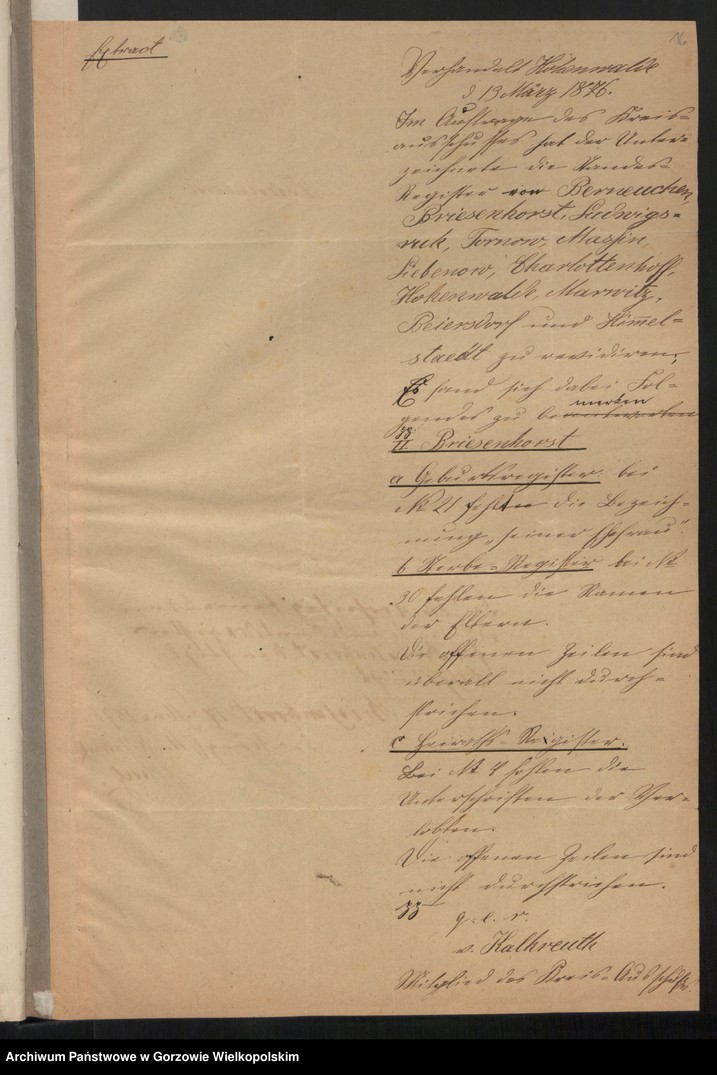 16
Extract
Verhandelt Hohenwalde
d. 13 März 1876.
Im Auftrage des Kreis=
ausschusses hat der Unter=
zeichnete die Standes=
Register von Berneuchen,
Briesenhorst, Ludwigs=
ruh, Tornow, Massin,
Liebenow, Charlottenhoff,
Hohenwalde, Marwitz,
Beiersdorf und Himmel=
staedt zu revidiren,
Es fand sich dabei Fol=
gendes zu bemerken
II. Briesenhorst
a Geburtsregister bei
No 21 fehlen die Bezeich=
nung „seiner Ehefrau“.
b Sterbe=Register bei No
30 fehlen die Namen
der Eltern.
Die offenen Zeilen sind
überall nicht durch=
strichen.
c Heiraths=Register.
Bei No 4 fehlen die
Unterschriften der Ver=
lobten.
Die offenen Zeilen sind
nicht durchstrichen.
v. Kalkreuth
Mitglied des Kreis=Ausschusses
Archiwum Państwowe w Gorzowie Wielkopolskim